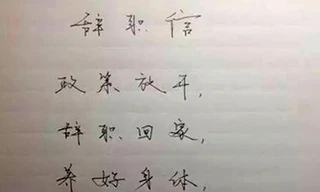 辞职信
政策放开,
辞职回家,
养好身体,